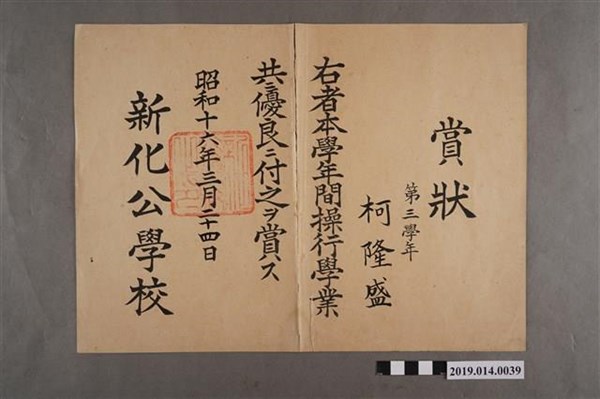 賞狀
第三學年
柯隆盛
右者本學年間操行學業
共ニ優良ニ付之ヲ賞ス
昭和十六年三月二十四日
新化公學校
2019.014.0039